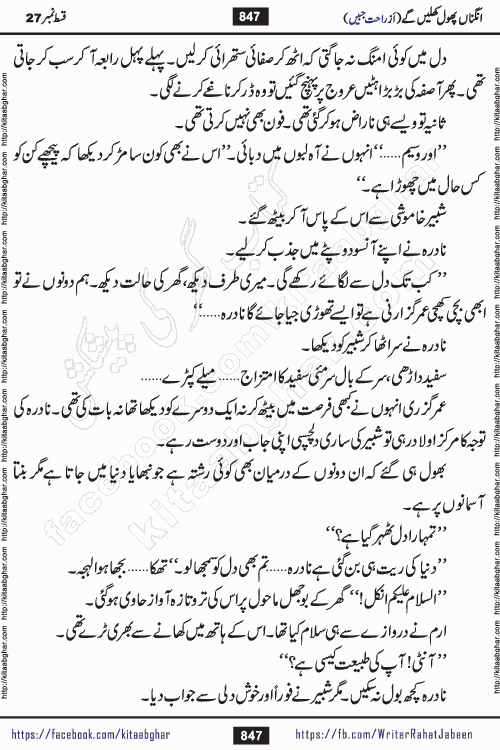 انگناں پھول کھلیں گے (از راحت جبیں)
847
قسط نمبر 27
دل میں کوئی امنگ نہ جاگتی کہ اٹھ کر صفائی ستھرائی کر لیں۔ پہلے پہل رابعہ آ کر سب کر جاتی
تھی۔ پھر آصفہ کی بڑبڑاہٹیں عروج پر پہنچ گئیں تو وہ ڈر کر ناغے کرنے لگی۔
ثانیہ تو ویسے ہی ناراض ہو کر گئی تھی۔ فون بھی نہیں کرتی تھی۔
’’اور وسیم......‘‘ انہوں نے آہ لبوں میں دبائی۔ ’’اس نے بھی کون سا مڑ کر دیکھا کہ پیچھے کن کو
کس حال میں چھوڑا ہے۔‘‘
شبیر خاموشی سے اس کے پاس آ کر بیٹھ گئے۔
نادرہ نے اپنے آنسو دوپٹے میں جذب کر لیے۔
’’کب تک دل سے لگائے رکھے گی۔ میری طرف دیکھ، گھر کی حالت دیکھ۔ ہم دونوں نے تو
ابھی بچی کھچی عمر گزارنی ہے تو ایسے تھوڑی جیا جائے گا نادرہ......‘‘
نادرہ نے سر اٹھا کر شبیر کو دیکھا۔
سفید داڑھی، سر کے بال سرمئی سفید کا امتزاج...... میلے کپڑے......
عمر گزری انہوں نے کبھی فرصت میں بیٹھ کر نہ ایک دوسرے کو دیکھا تھا نہ بات کی تھی۔ نادرہ کی
توجہ کا مرکز اولاد رہی تو شبیر کی ساری دلچسپی اپنی جاب اور دوست رہے۔
بھول ہی گئے کہ ان دونوں کے درمیان بھی کوئی رشتہ ہے جو نبھایا دنیا میں جاتا ہے مگر بنتا
آسمانوں پر ہے۔
’’تمہارا دل ٹھہر گیا ہے؟‘‘
’’دنیا کی ریت ہی بن گئی ہے نادرہ...... تم بھی دل کو سمجھا لو۔‘‘ تھکا...... بجھا ہوا لہجہ۔
’’السلام علیکم انکل!‘‘ گھر کے بوجھل ماحول پر اس کی تروتازہ آواز حاوی ہو گئی۔
ارم نے دروازے سے ہی سلام کیا تھا۔ اس کے ہاتھ میں کھانے سے بھری ٹرے تھی۔
’’آنٹی! آپ کی طبیعت کیسی ہے؟‘‘
نادرہ کچھ بول نہ سکیں۔ مگر شبیر نے فوراً اور خوش دلی سے جواب دیا۔
http://kitaabghar.com http://kitaabghar.com http://kitaabghar.com http://kitaabghar.com http://kitaabghar.com http://kitaabghar.com
http://kitaabghar.com http://kitaabghar.com http://kitaabghar.com http://kitaabghar.com http://kitaabghar.com http://kitaabghar.com
کتاب گھر کی پیشکش
facebook.com/kitaabghar
kitaabghar.com
https://facebook.com/kitaabghar
847
https://fb.com/WriterRahatJabeen